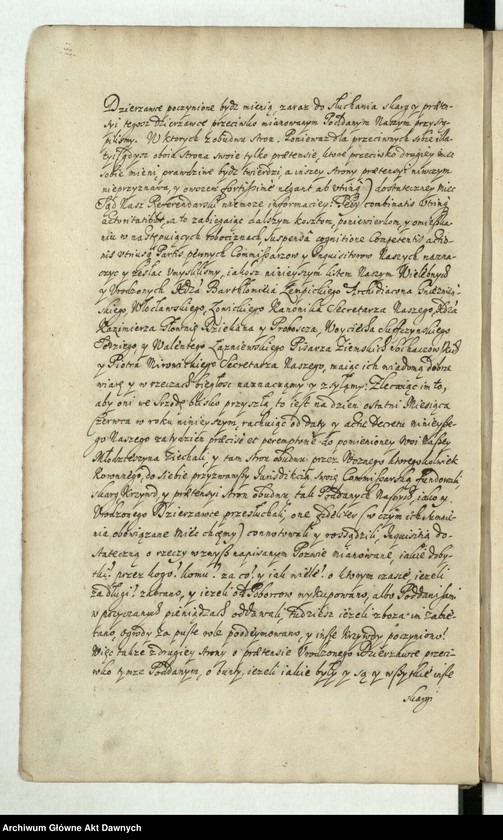 Dzierzawce poczynione bydź mienią, zaraz do słuchania skargi y præten-
syi tegosz Dzierzawce przeciwko mianowanym Poddanym Naszym przystą-
piliśmy. W ktorych z obudwu stron. Ponieważ dla przeciwnych sobie
gdysz obia Strona swoie tylko prætensie, ktore przeciwko drugiey miec
sobie mieni, prawdziwe bydź twierdzi, a inszey Strony prætensyi niwczym
nieprzyznawa, y owszem fortissime negant ab utring) dostateczney miec
Sąd Nasz Referendarski niemoze informaciey: Tedy combinatis utriusq
authoritatibus, a to zabiegaiąc dalszym kosztom, poniewierkom, y omieszka-
niu w następuiących robociznach, suspensa cognitione Competentis actio-
nis utriusq Partis pewnych Commissarzow y Inquisitorow Naszych nazna-
czyc y zesłac umyslilismy, iakosz ninieyszym listem Naszym Wielebnych
y Urodzonych Xdza Bartłomieia Archidiacona
skiego, Włocławskiego, Łowickiego Kanonika Secretarza Naszego, Xdza
Kazimierza Dziekana y Proboscza, Woyciecha
Sędziego, y Walentego Łaźniewskiego Pisarza Ziemskich Sochaczewskich
y Piotra Mirowickiego Secretarza Naszego, maiąc ich wiadomą dobrze
wiarę y w rzeczach biegłosc naznaczamy y zsyłamy; Zlecaiąc im to,
aby oni we Srzodę blisko przyszłą to iest na dzien ostatni Miesiąca
Czerwca w roku ninieyszym, rachuiąc od daty y actu Decretu ninieysze-
go Naszego za tydzien præcise et peremptorie do pomienioney Wsi Naszey
Młodzieszyna ziechali, y tam stron obudwu przez Woznego ktoregokolwiek
Koronnego, do siebie przyzwawszy Jurisdictią swoię Commissarską fundowali,
skarg Krzywd, y prætensyi stron obudwu, tak Poddanych Naszych, iako y
Urodzonego Dzierzawce przesłuchali, one fideliter (w czym ich sumnie-
nia obowiązane miec chcemy) connotowali y rozsądzili, Inquisitią do-
stateczną o rzeczy wzwysz napisanym Pozwie mianowane, iakie doby-
tki? przez kogo? komu? za co? y iak wiele? o ktorym czasie iezeli
za długi? zabrano, y iezeli od Poborcow wykupowano, albo Poddani sami
w pozyczanych pieniądzach oddawali, tudziesz iezeli zboza im zabie-
rano, ogrody za puste role poodeymowano, y insze Krzywdy poczyniono?
Więc także z drugiey strony o prætensie Urodzonego Dzierzawce przeci-
wko tymze Poddanym, o bunty, iezeli iakie były y są, y wszytkie insze
skargi
Archiwum Główne Akt Dawnych